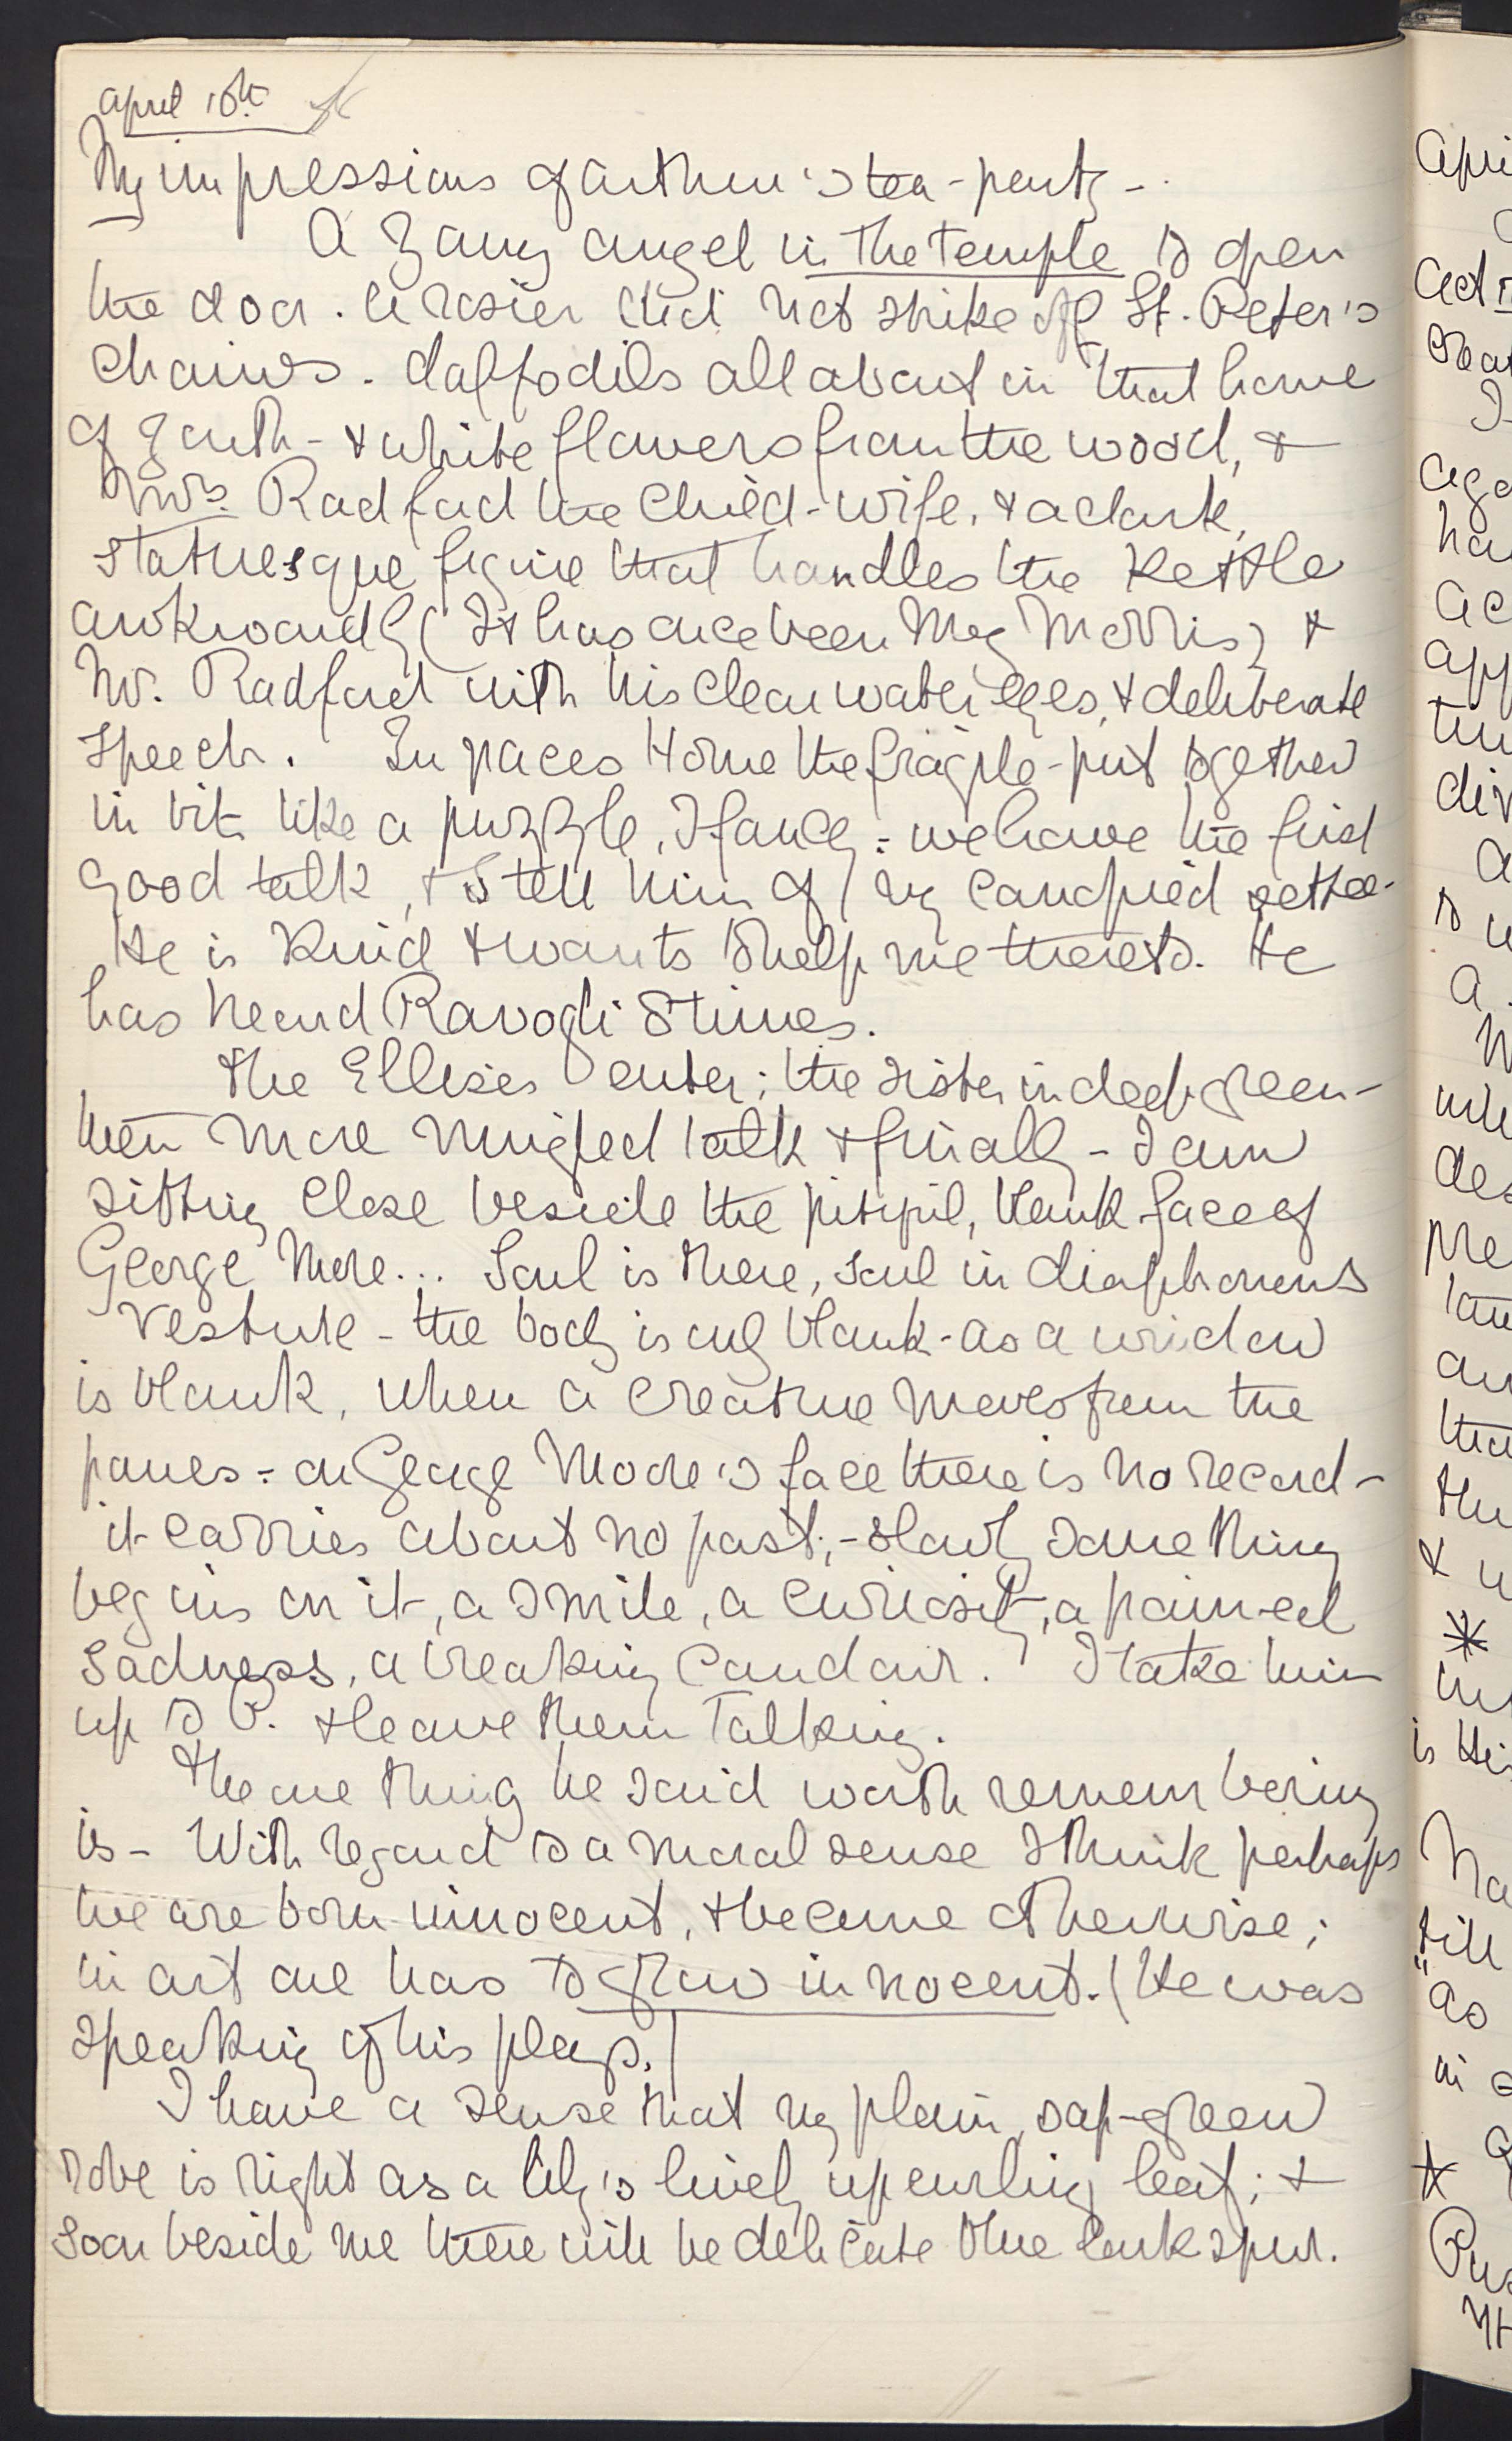 April 10th
My impressions of Arthur's tea-party -
A young angel in The Temple to open
the door. A rosier did not strike off St. Peter's
chains. Daffodils all about in that home
of youth - & white flowers from the wood, &
Mrs. Radford the child-wife, & a dark,
statuesque figure that handles the kettle
awkwardly (It has once been May Morris) &
Mr. Radford with his clear water eyes, & deliberate
speech. In paces Horne the fragile - put together
in bits like a puzzle, I fancy: we have the first
good talk, & I tell him of my settee -
He is kind & wants to help me thereto. He
has heard Ravogli 8 times.
The Ellises enter; the sister in deep green -
then more mingled talk & finally - I am
sitting close beside the pitiful, blank face of
George More... Soul is there, soul in diaphonous
vesture - the body is only blank - as a window
is blank, when a creature moves from the
panes = on George Moore's face there is no record -
it carries about no past; - slowly something
begins on it, a smile, a curiosity, a pained
sadness, a breaking candour. I take him
up to P. & leave them talking.
The one thing he said worth remembering
is - With regard to a moral sense I think perhaps
we are born innocent, & become otherwise;
in art one has to grow innocent. (He was
speaking of his plays.)
I have a sense that my plain, sap-green
robe is right as a lily's lively upcurling leaf; &
soon beside me there will be delicate blue larkspur.